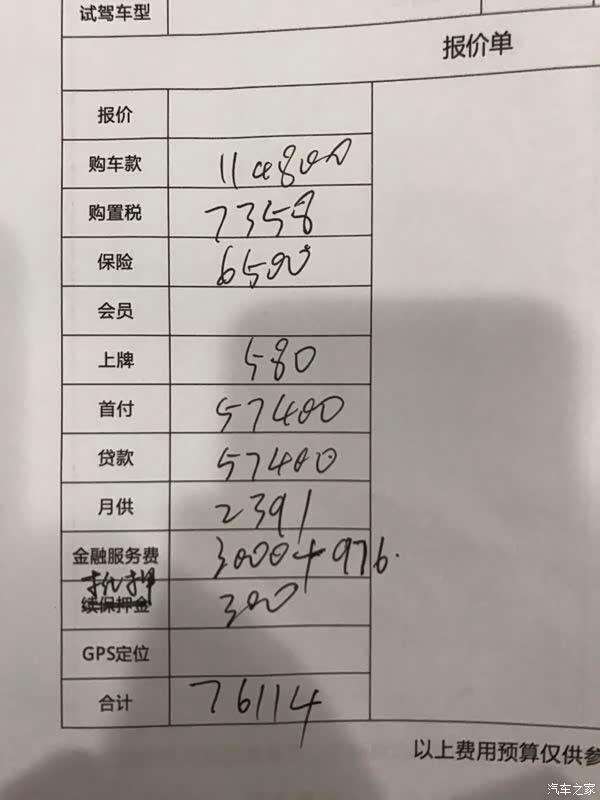 试驾车型
报价单
报价
购车款 114800
购置税 7358
保险 6500
会员
上牌 580
首付 57400
贷款 57400
月供 2391
金融服务费 3000+976.
抵押
续保押金 300
GPS定位
合计 76114
以上费用预算仅供参
汽车之家